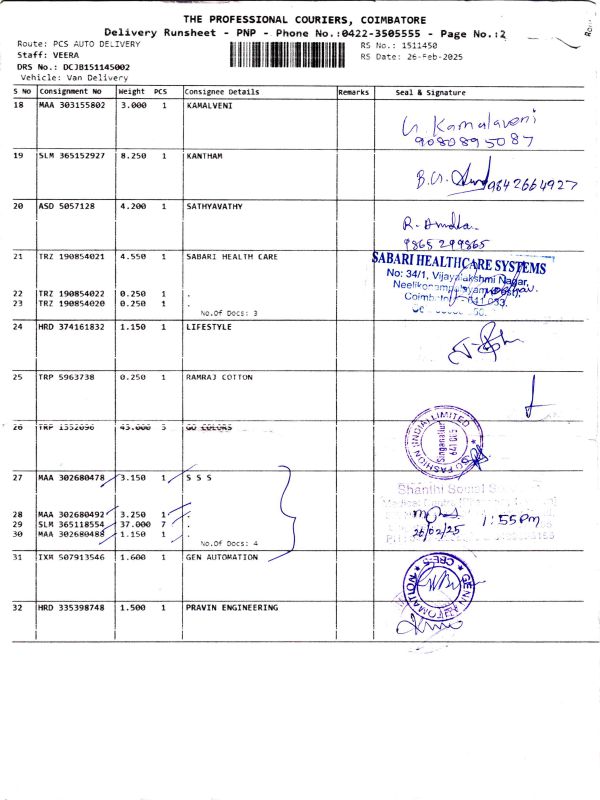 THE PROFESSIONAL COURIERS, COIMBATORE
Delivery Runsheet - PNP - Phone No.:0422-3505555 - Page No.:2
Route: PCS AUTO DELIVERY
RS No.: 1511450
Staff: VEERA
RS Date: 26-Feb-2025
DRS No.: DCJB151145002
Vehicle: Van Delivery
S No Consignment No Weight PCS Consignee Details Remarks Seal & Signature
18 MAA 303155802 3.000 1 KAMALVENI
G. Kamalaveni
9080895087
19 SLM 365152927 8.250 1 KANTHAM
B.G. 9842664927
20 ASD 5057128 4.200 1 SATHYAVATHY
R.
9865299865
21 TRZ 190854021 4.550 1 SABARI HEALTH CARE
SABARI HEALTHCARE SYSTEMS
No: 34/1, Vijayalakshmi Nagar,
22 TRZ 190854022 0.250 1 .
23 TRZ 190854020 0.250 1 .
No.Of Docs: 3
24 HRD 374161832 1.150 1 LIFESTYLE
25 TRP 5963738 0.250 1 RAMRAJ COTTON
26 TRP 1352096 43.000 3 GO COLORS
GO FASHION (INDIA) LIMITED
Singanallur
641 005
27 MAA 302680478 3.150 1 S S S
Shanthi Social
28 MAA 302680492 3.250 1 .
29 SLM 365118554 37.000 7 .
30 MAA 302680488 1.150 1 .
26/02/25 1:55pm
No.Of Docs: 4
31 IXM 507913546 1.600 1 GEN AUTOMATION
32 HRD 335398748 1.500 1 PRAVIN ENGINEERING